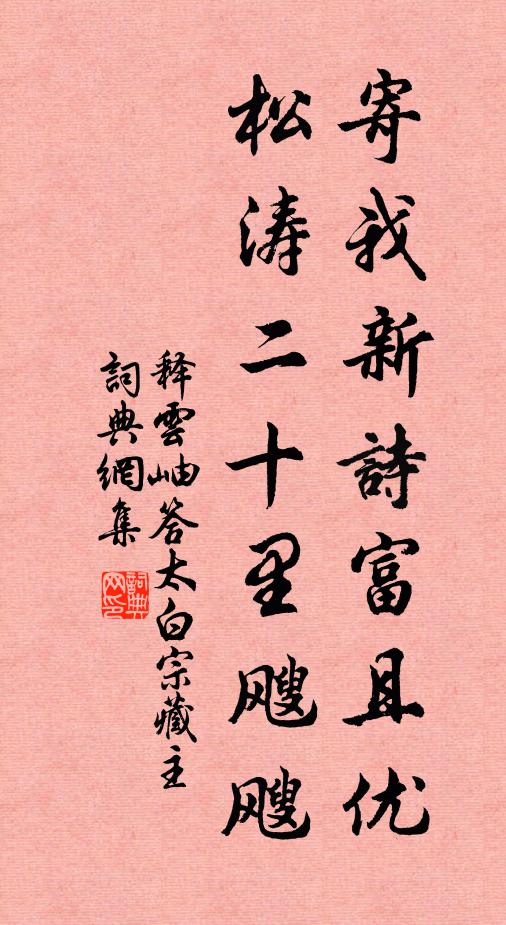 寄我新詩富且优
松涛二十里飕飕
释雲岫答太白宗藏主
詞典網集
詞典网印